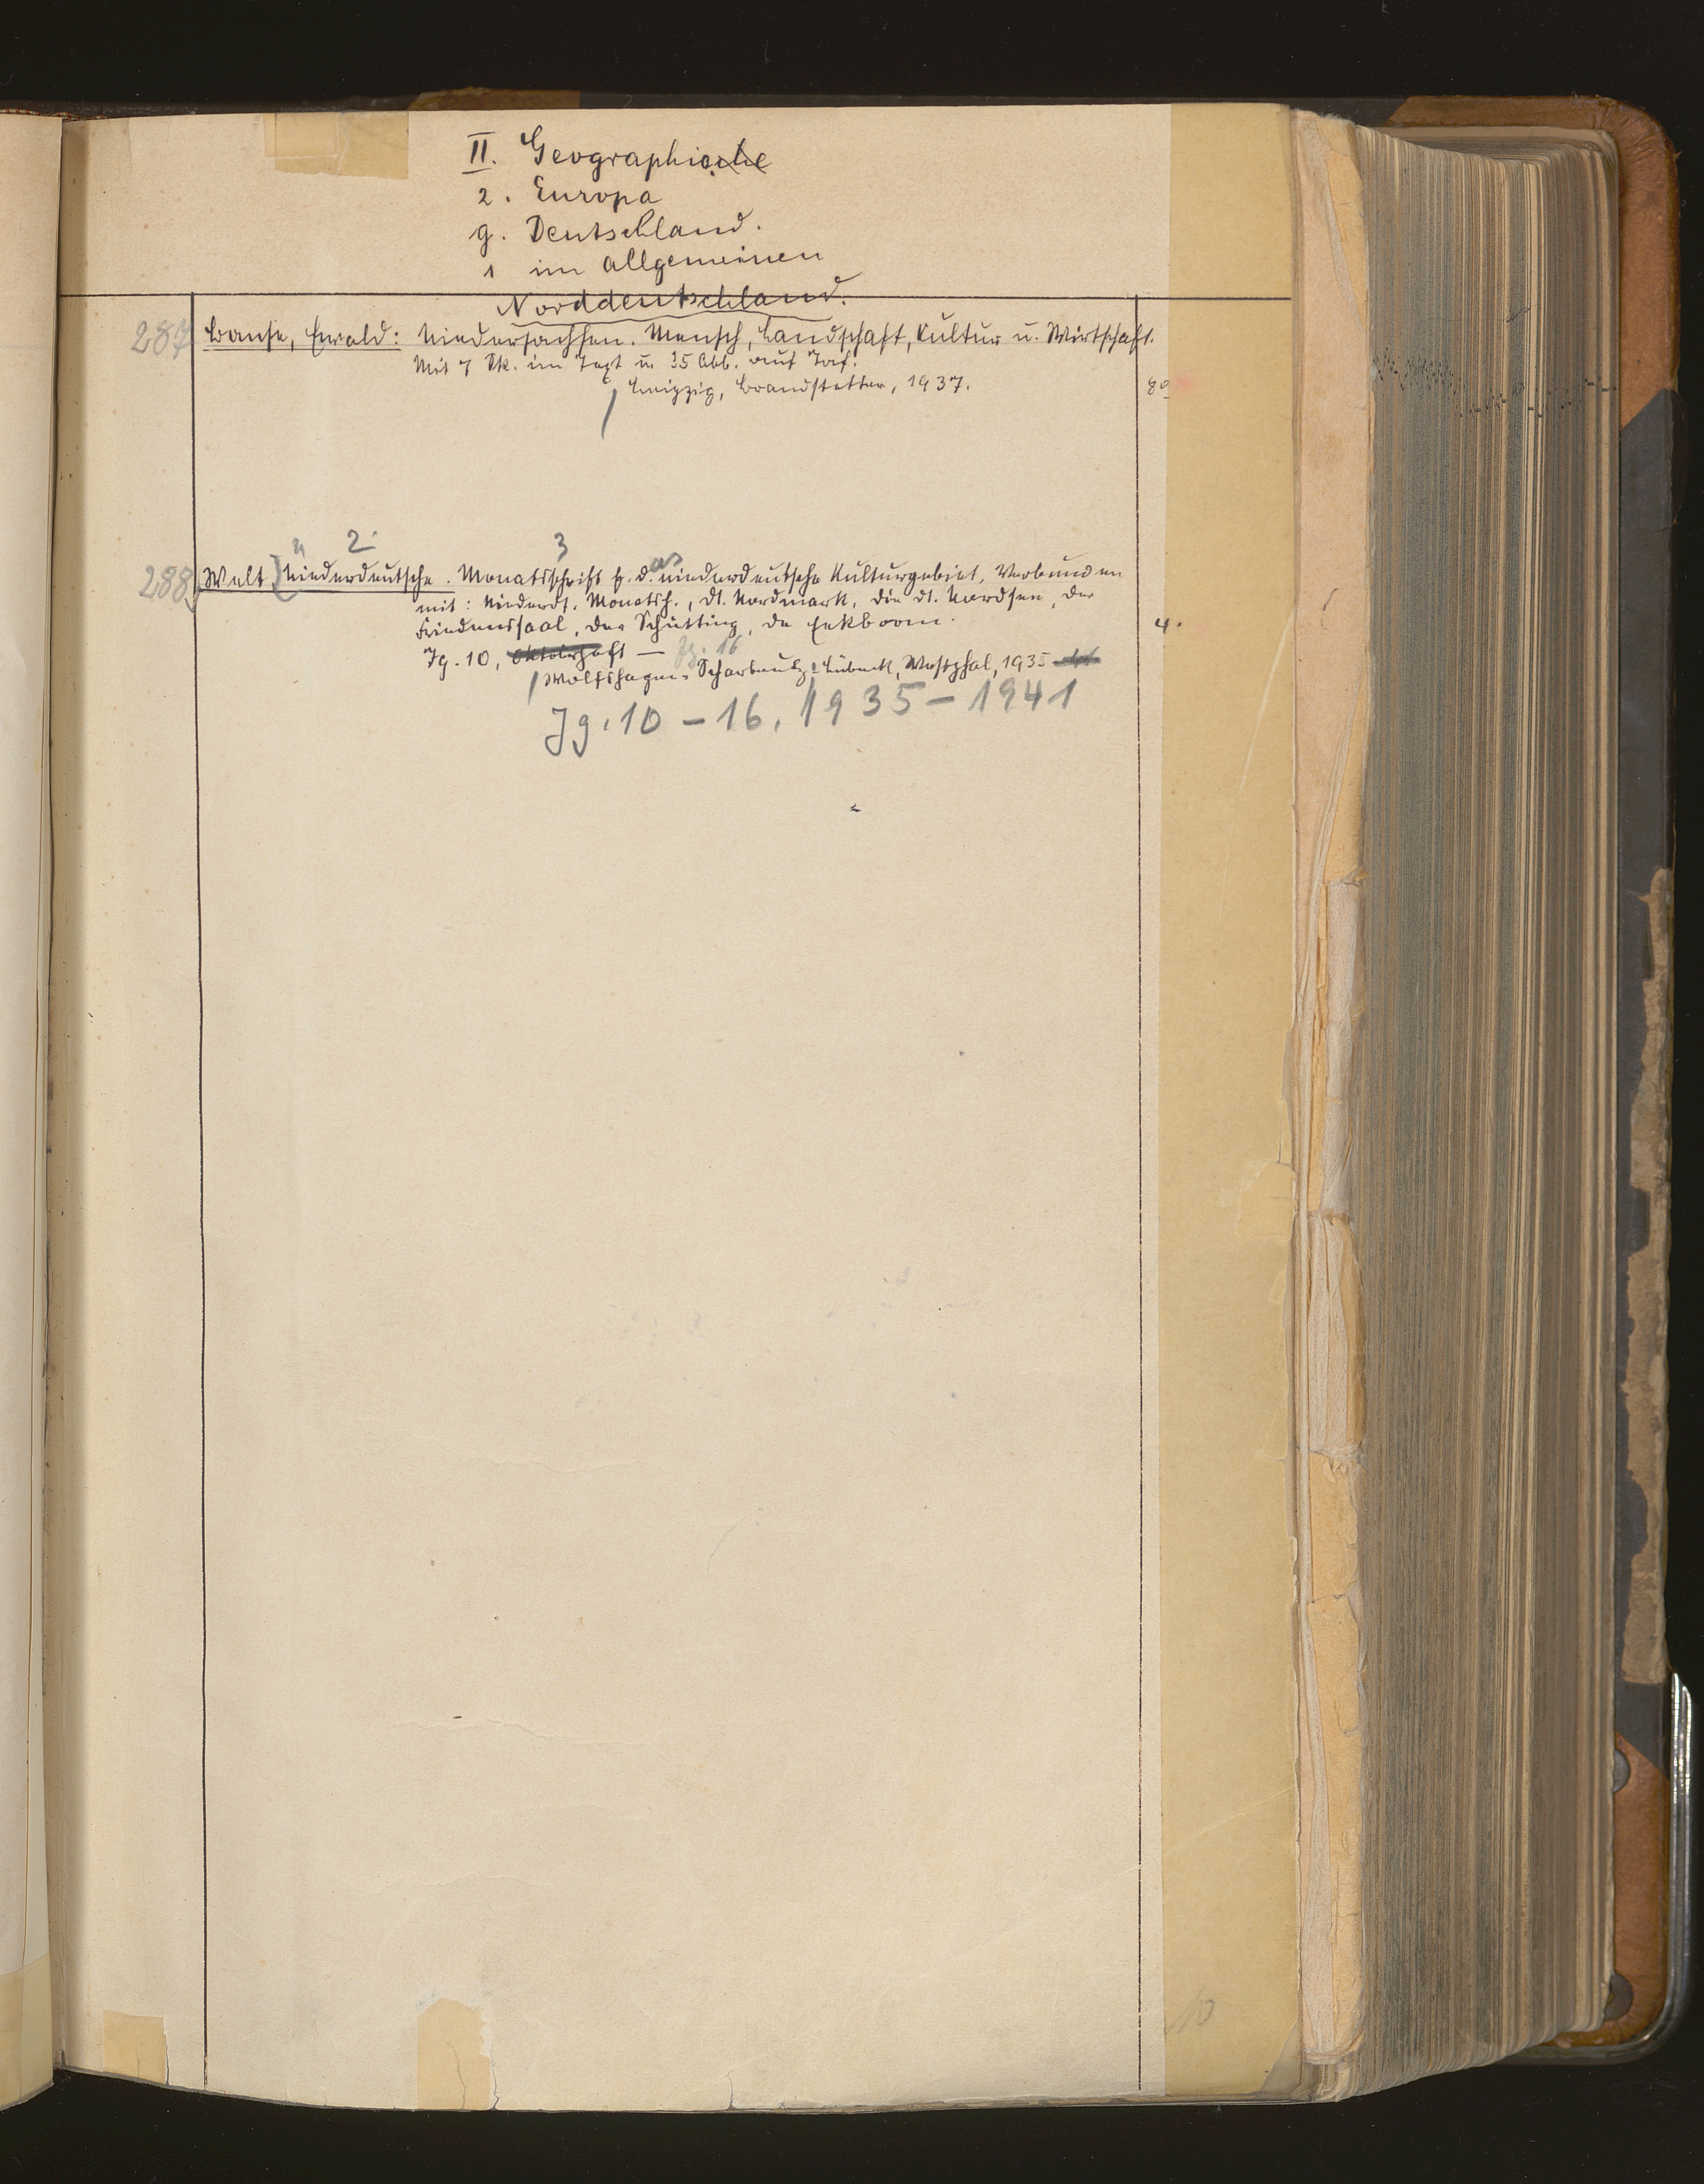 II. Geographische
2. Europa
g. Deutschland.
1 im allgemeinen
Norddeutschland.
287 Banse, Ewald: Niedersachsen. Mensch, Landschaft, Kultur u. Wirtschaft.
Mit 7 Sk. im Text u. 35 Abb. auf Taf.
Leipzig, Brandstetter, 1937. 8°
2. 3
288 Welt, Niederdeutsche. Monatsschrift f. das niederdeutsche Kulturgebiet. Verbunden
mit: Niederdt. Monatsh., Dt. Nordmark, die dt. Nordsee, Der
Friedenssaal, Der Schütting, De Eekboom. 4.
Jg. 10, Oktoberheft — Jg. 16
Wolfshagen-Scharbeutz: Lübeck, Westphal, 1935
Jg. 10 - 16. 1935 - 1941